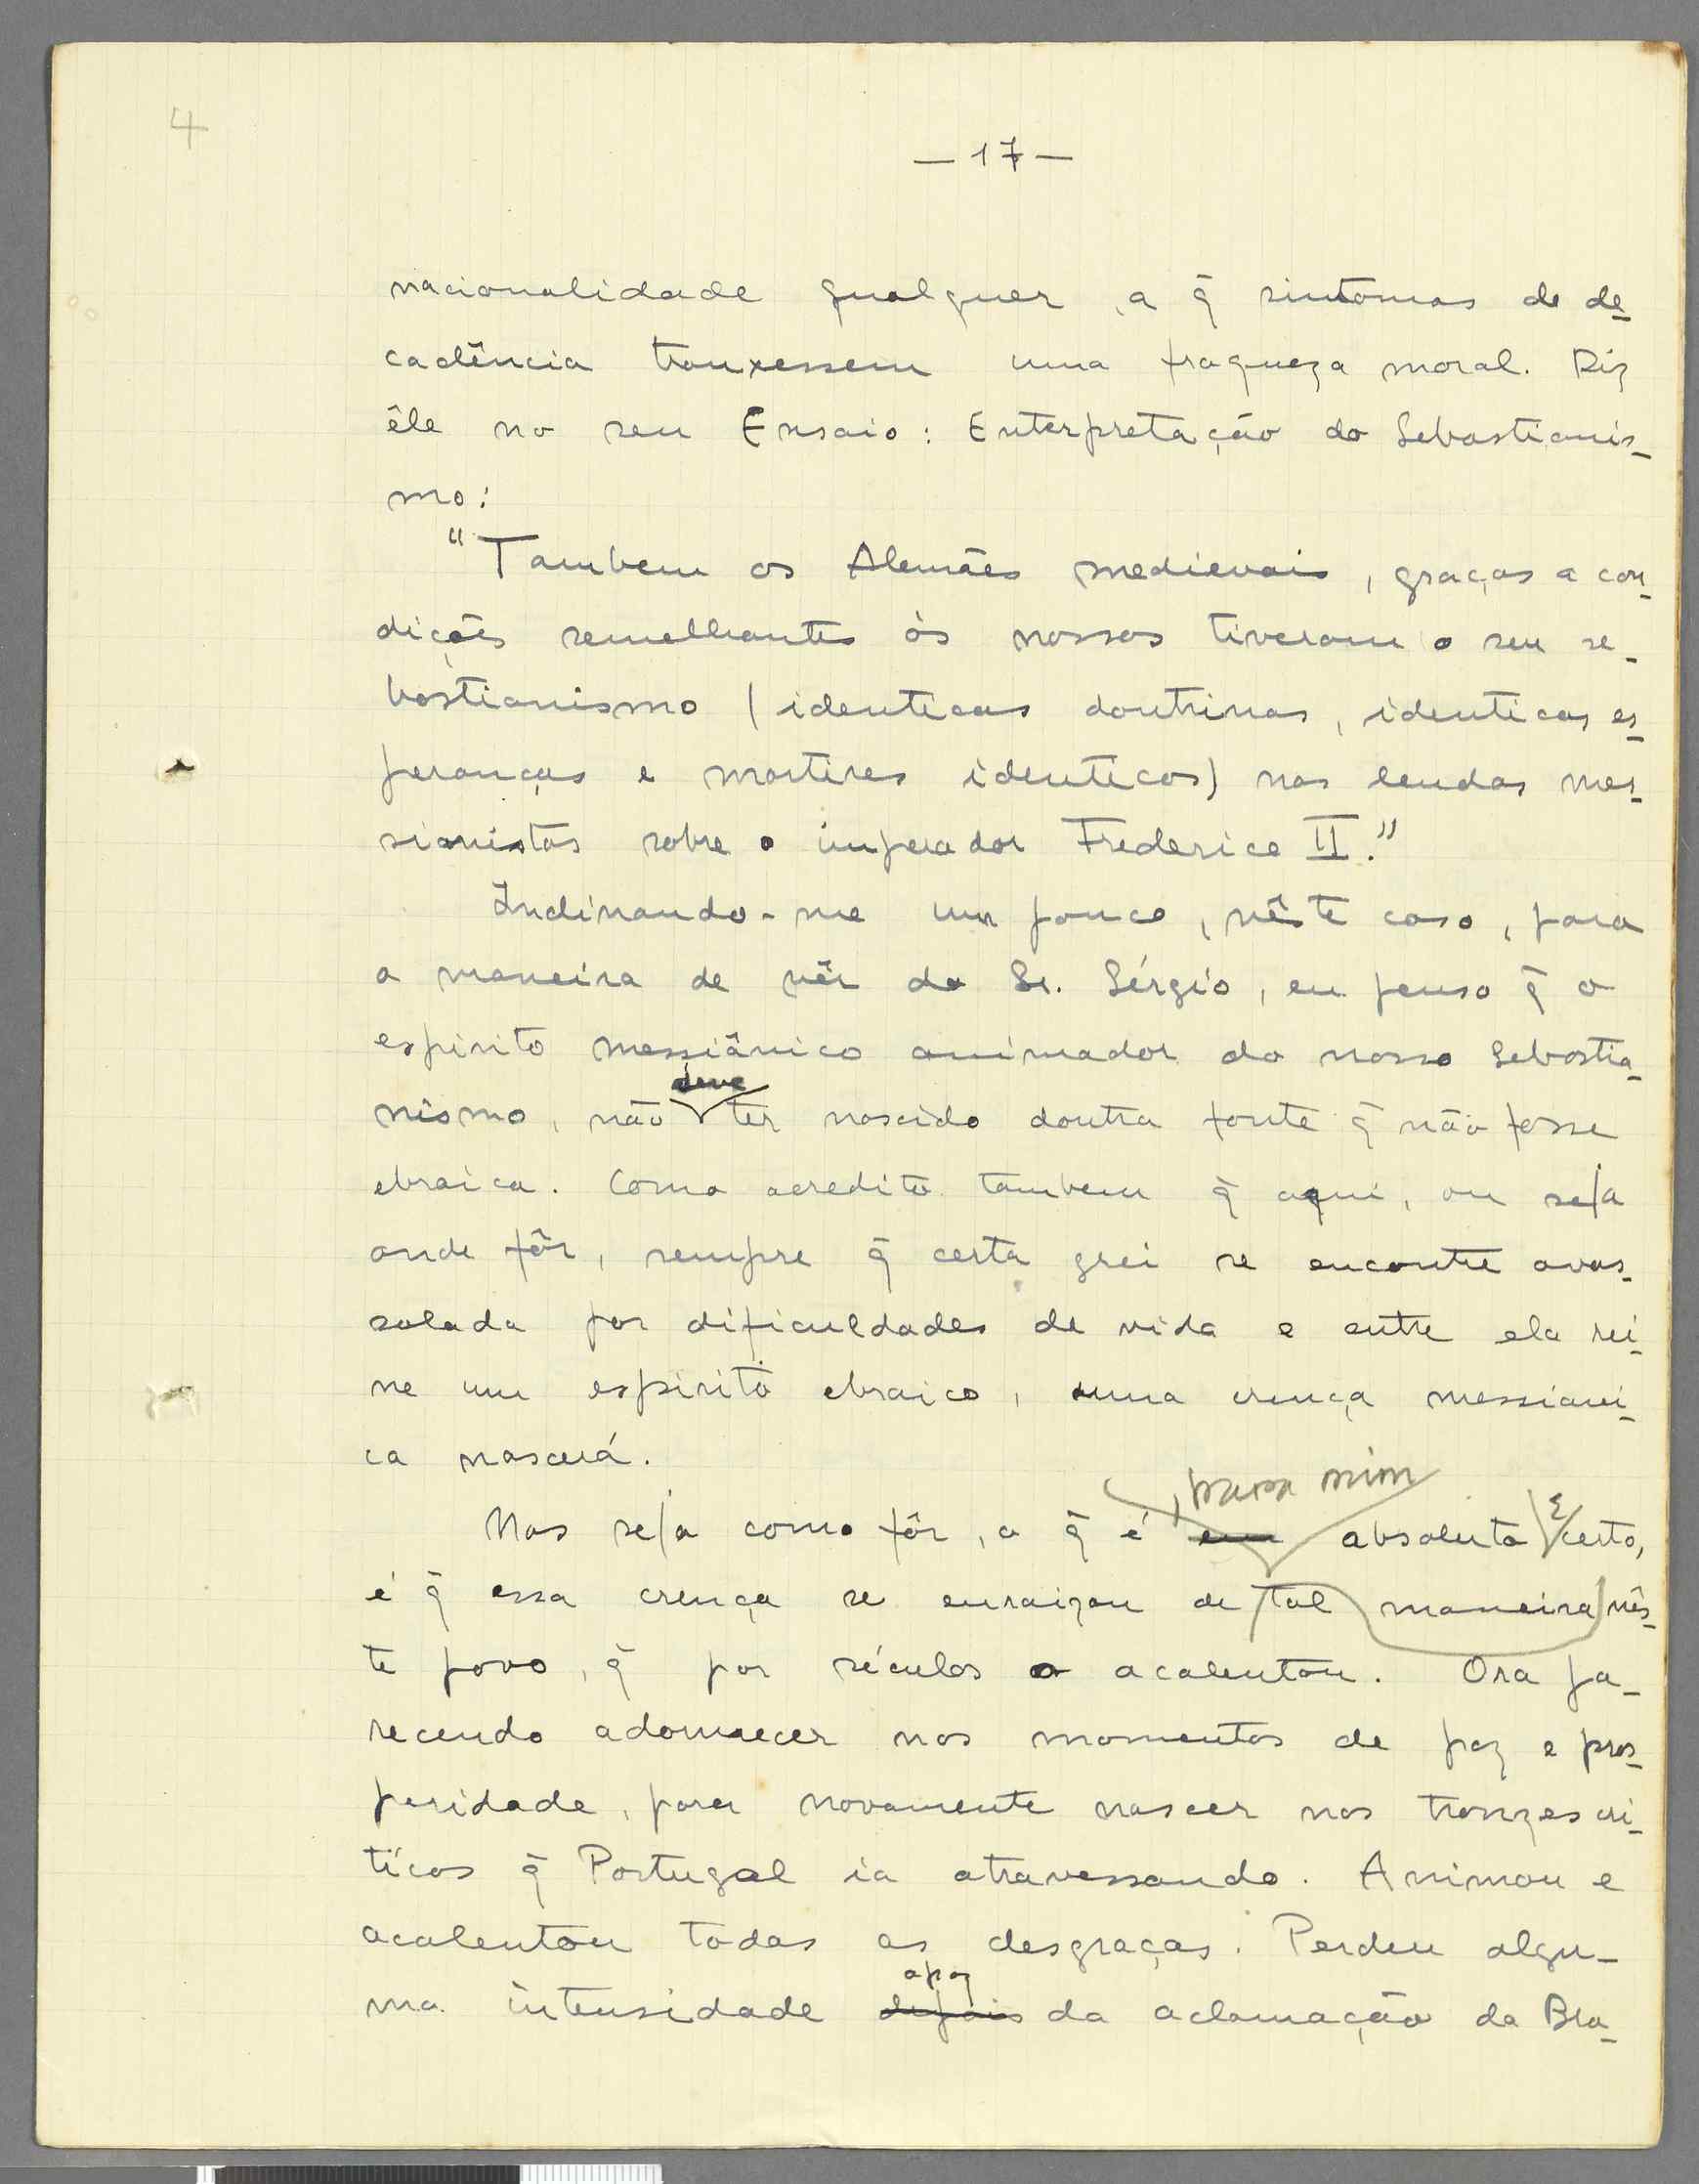 4
— 17 —
nacionalidade qualquer, a q̃ sintomas de de-
cadência trouxessem uma fraqueza moral. Diz
êle no seu Ensaio: Enterpretação do Sebastianis-
mo:
"Tambem os Alemães medievais, graças a con-
dições semelhantes às nossas tiveram o seu se-
bastianismo (identicas doutrinas, identicas es-
peranças e martires identicos) nas lendas mes-
sianistas sobre o imperador Frederico II."
Inclinando-me um pouco, nêste caso, para
a maneira de vêr do Sr. Sérgio, eu penso q̃ o
espirito messiânico animador do nosso Sebastia-
deve
nismo, não ter nascido doutra fonte q̃ não fosse
ebraica. Como acredito tambem q̃ aqui, ou seja
onde fôr, sempre q̃ certa grei se encontre avas-
salada por dificuldades de vida e entre ela rei-
ne um espirito ebraico, uma crença messiani-
ca nascerá.
, para mim
Mas seja como fôr, o q̃ é em absoluto e certo,
é q̃ essa crença se enraizou de tal maneira nês-
te povo, q̃ por séculos o acalentou. Ora pa-
recendo adormecer nos momentos de paz e pros-
peridade, para novamente nascer nos tranzes cri-
ticos q̃ Portugal ia atravessando. Animou e
acalentou todas as desgraças. Perdeu algu-
apoz
ma intensidade depois da aclamação do Bra-